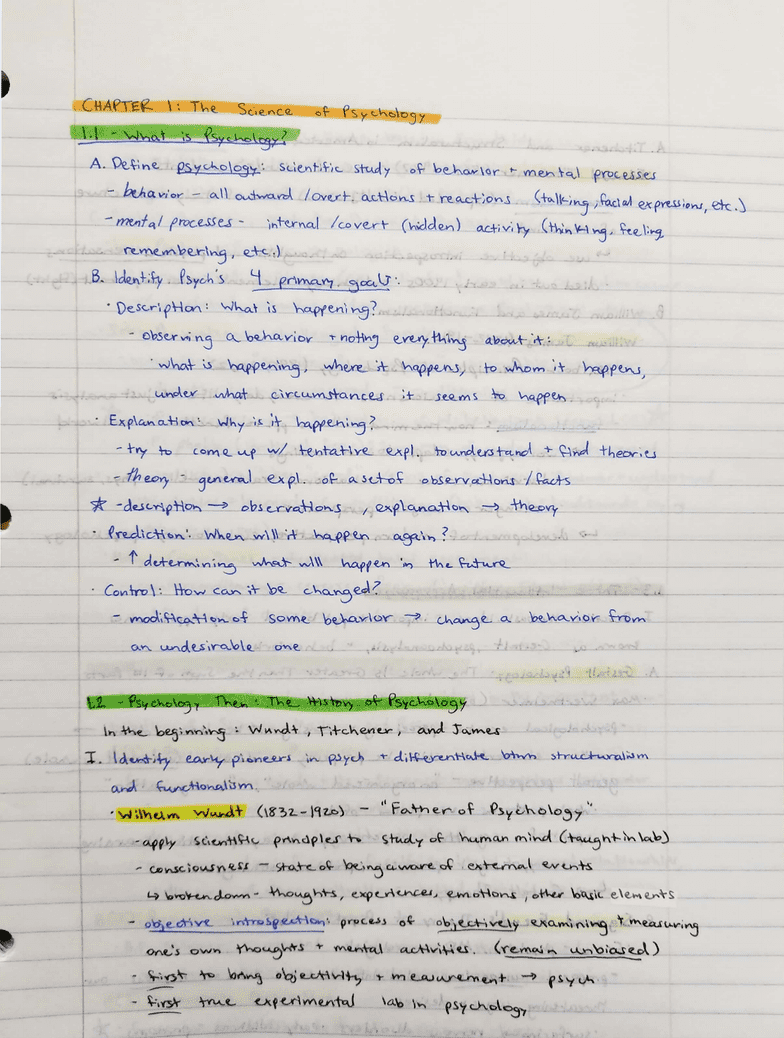 CHAPTER 1: The Science of Psychology
1.1 - What is Psychology?
A. Define psychology: scientific study of behavior + mental processes
- behavior - all outward/overt actions + reactions (talking, facial expressions, etc.)
- mental processes - internal/covert (hidden) activity (thinking, feeling,
remembering, etc.)
B. Identify Psych's 4 primary goals:
· Description: What is happening?
- observing a behavior + noting everything about it:
· what is happening, where it happens, to whom it happens,
under what circumstances it seems to happen.
· Explanation: Why is it happening?
- try to come up w/ tentative expl. to understand + find theories
- theory - general expl. of a set of observations/facts
☆ - description → observations, explanation → theory
· Prediction: When will it happen again?
- ↑ determining what will happen in the future
· Control: How can it be changed?
- modification of some behavior → change a behavior from
an undesirable one
1.2 - Psychology Then: The History of Psychology
In the beginning: Wundt, Titchener, and James
I. Identify early pioneers in psych + differentiate btwn structuralism
and functionalism.
· Wilhelm Wundt (1832-1920) - "Father of Psychology"
- apply scientific principles to study of human mind (taught in lab)
- consciousness - state of being aware of external events
↳ broken down - thoughts, experiences, emotions, other basic elements
- objective introspection: process of objectively examining + measuring
one's own thoughts + mental activities. (remain unbiased)
- first to bring objectivity + measurement → psych
- first true experimental lab in psychology